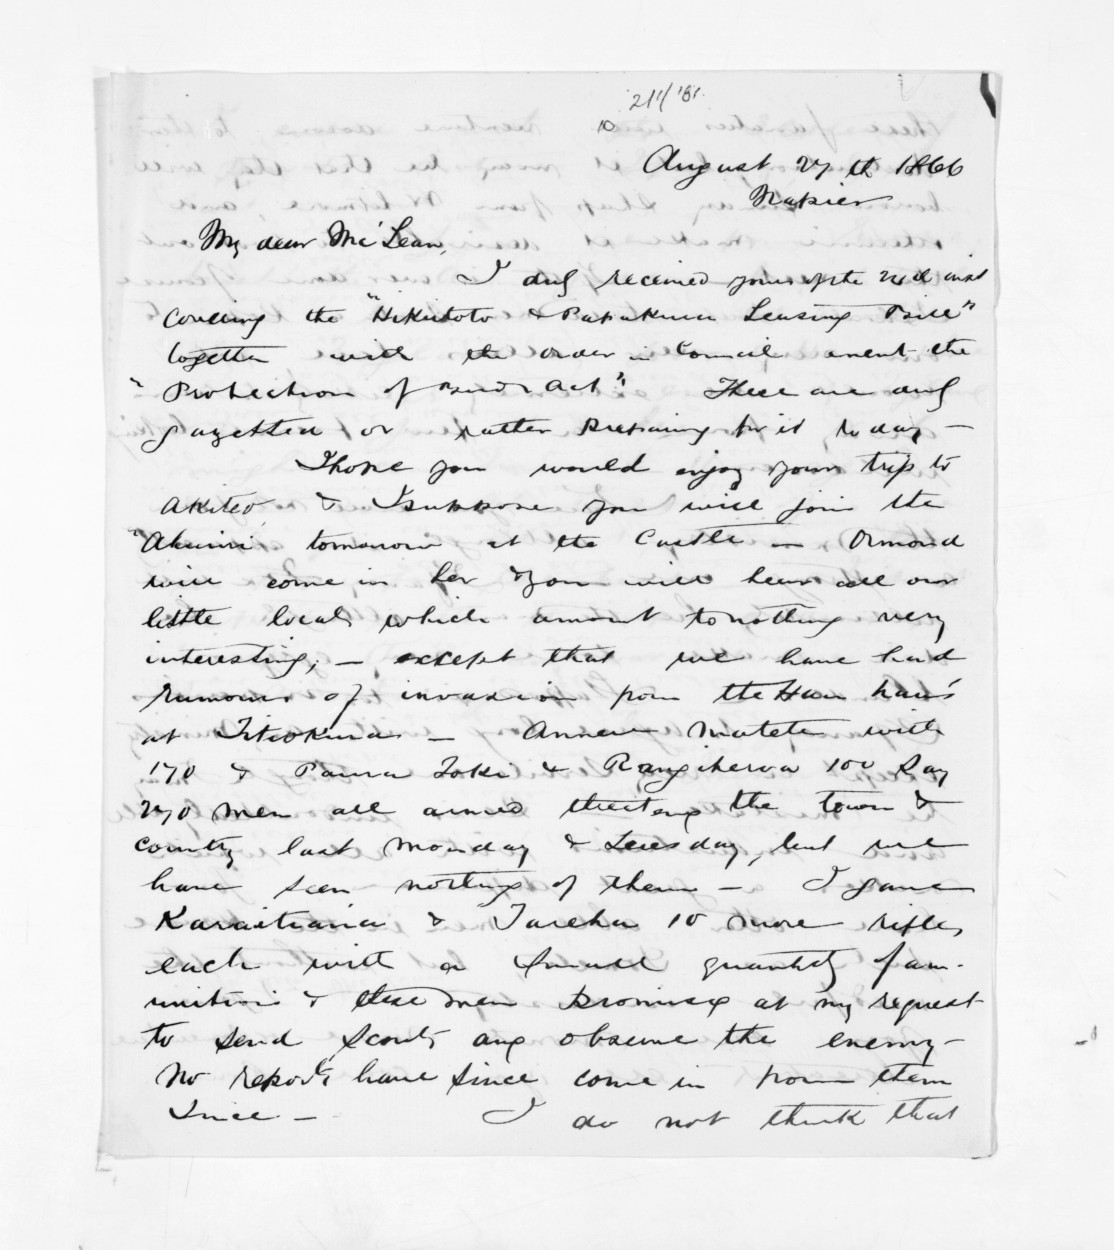 10
August 27 th 1866
Napier
My dear McLean,
I duly received yours of the 22d inst
covering the "Hikutoto & Papakura Leasing Bill"
together with the order in Council anent the
"Protection of Act". These are duly
gazetted or rather preparing for it today —
I hope you would enjoy your trip to
Akiteo, & I suppose you will join the
"Ahuriri" tomorrow at the Castle — Ormond
will come in her & you will hear all our
little locals which amount to nothing very
interesting, — except that we have had
rumours of invasion from the Hau hau's
at Titiokura — Anaru Matete with
170 & Paora Toki & Rangihiroa 100 say
270 men all armed threateng the town &
country last Monday & Tuesday, but we
have seen nothing of them — I gave
Karaitiana & Tareha 10 more rifles
each with a small quantity of am-
unition & these men promised at my request
to send scouts and observe the enemy —
No reports have since come in from them
since — I do not think that